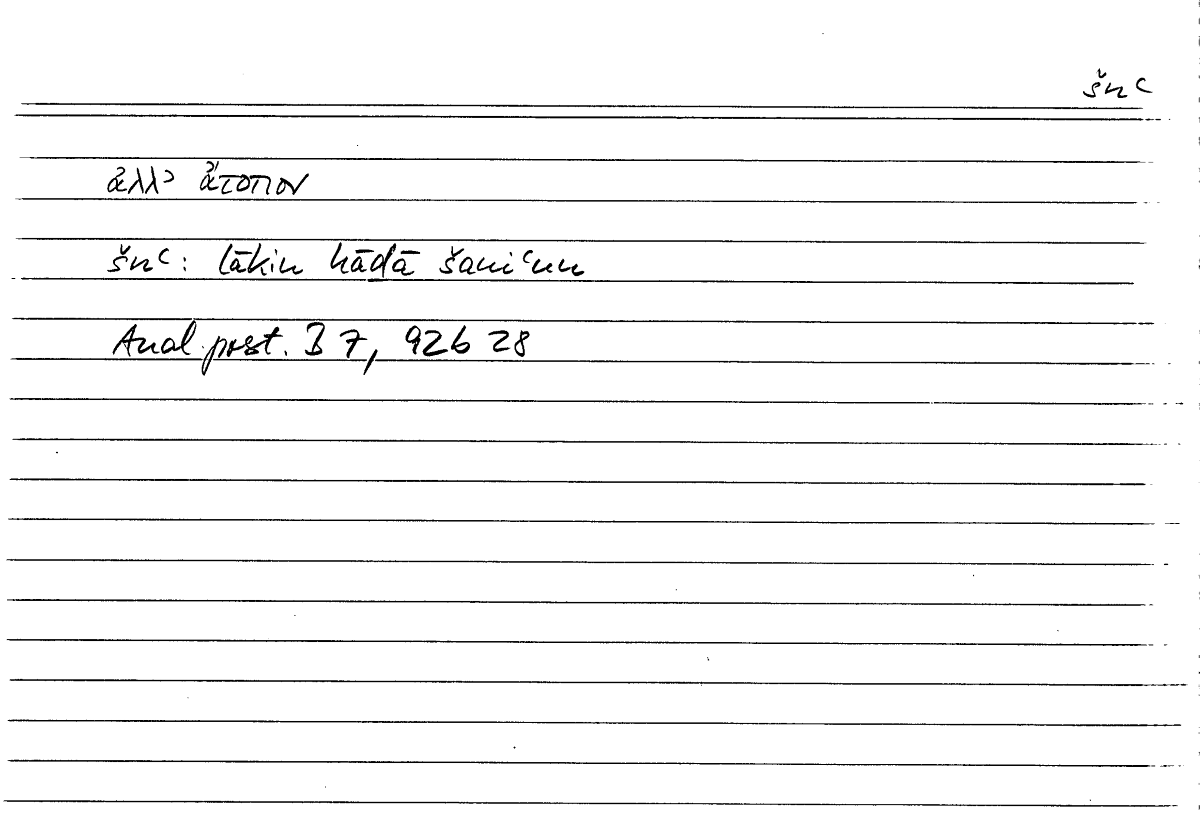 šnʿ
ἀλλ' ἄτοπον
šnʿ: lākin hāḏā šaniʿun
Anal. post. B 7, 92b 28